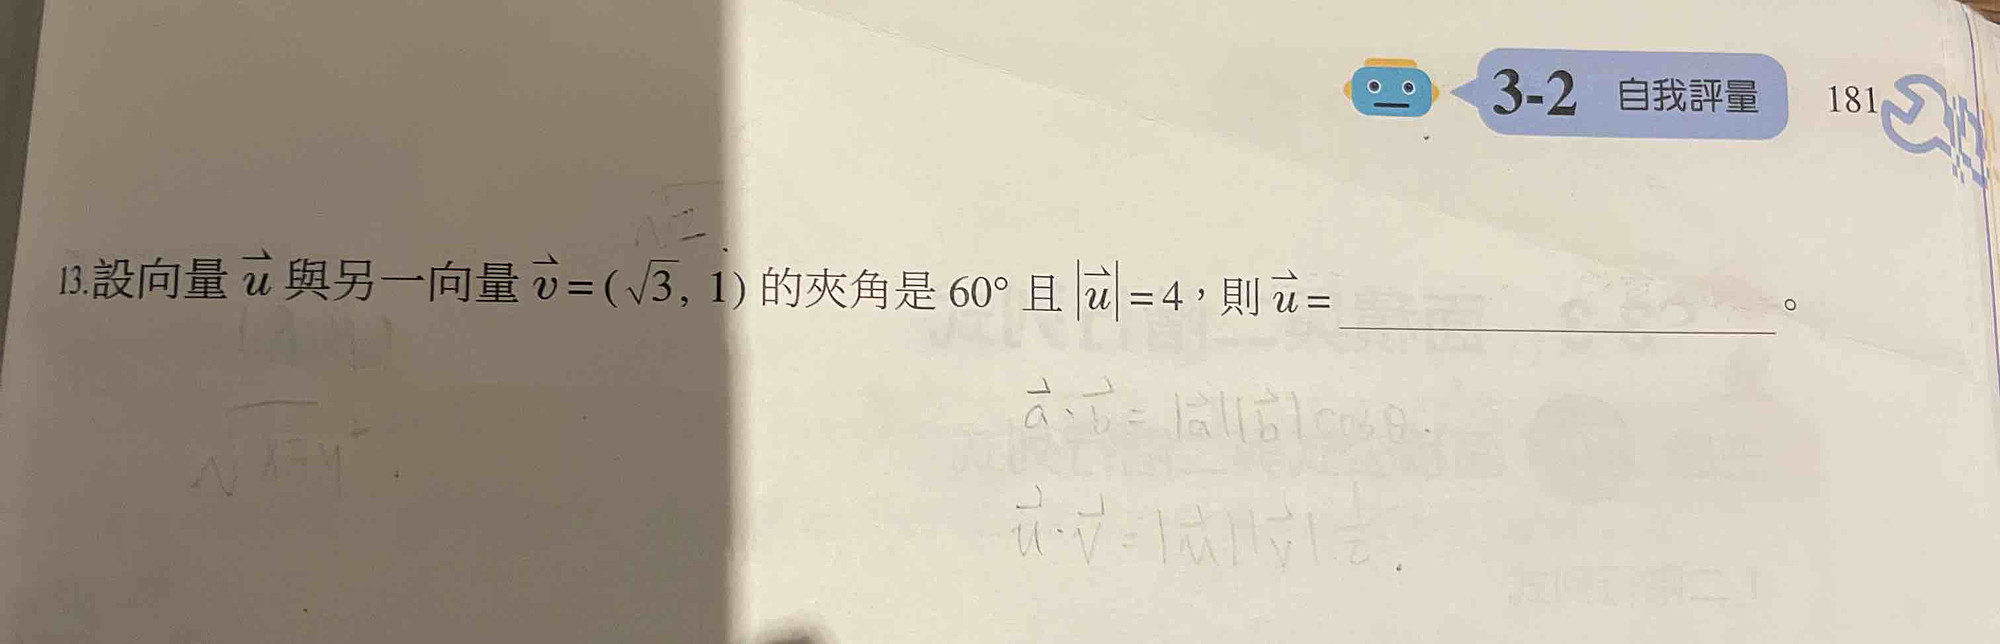 3-2 自我評量 181
13.設向量 u⃗ 與另一向量 v⃗ = (√3, 1) 的夾角是 60° 且 |u⃗| = 4,則 u⃗ = ________。
a⃗·b⃗ = |a⃗||b⃗|cosθ.
u⃗·v⃗ = |u⃗||v⃗|·1/2.